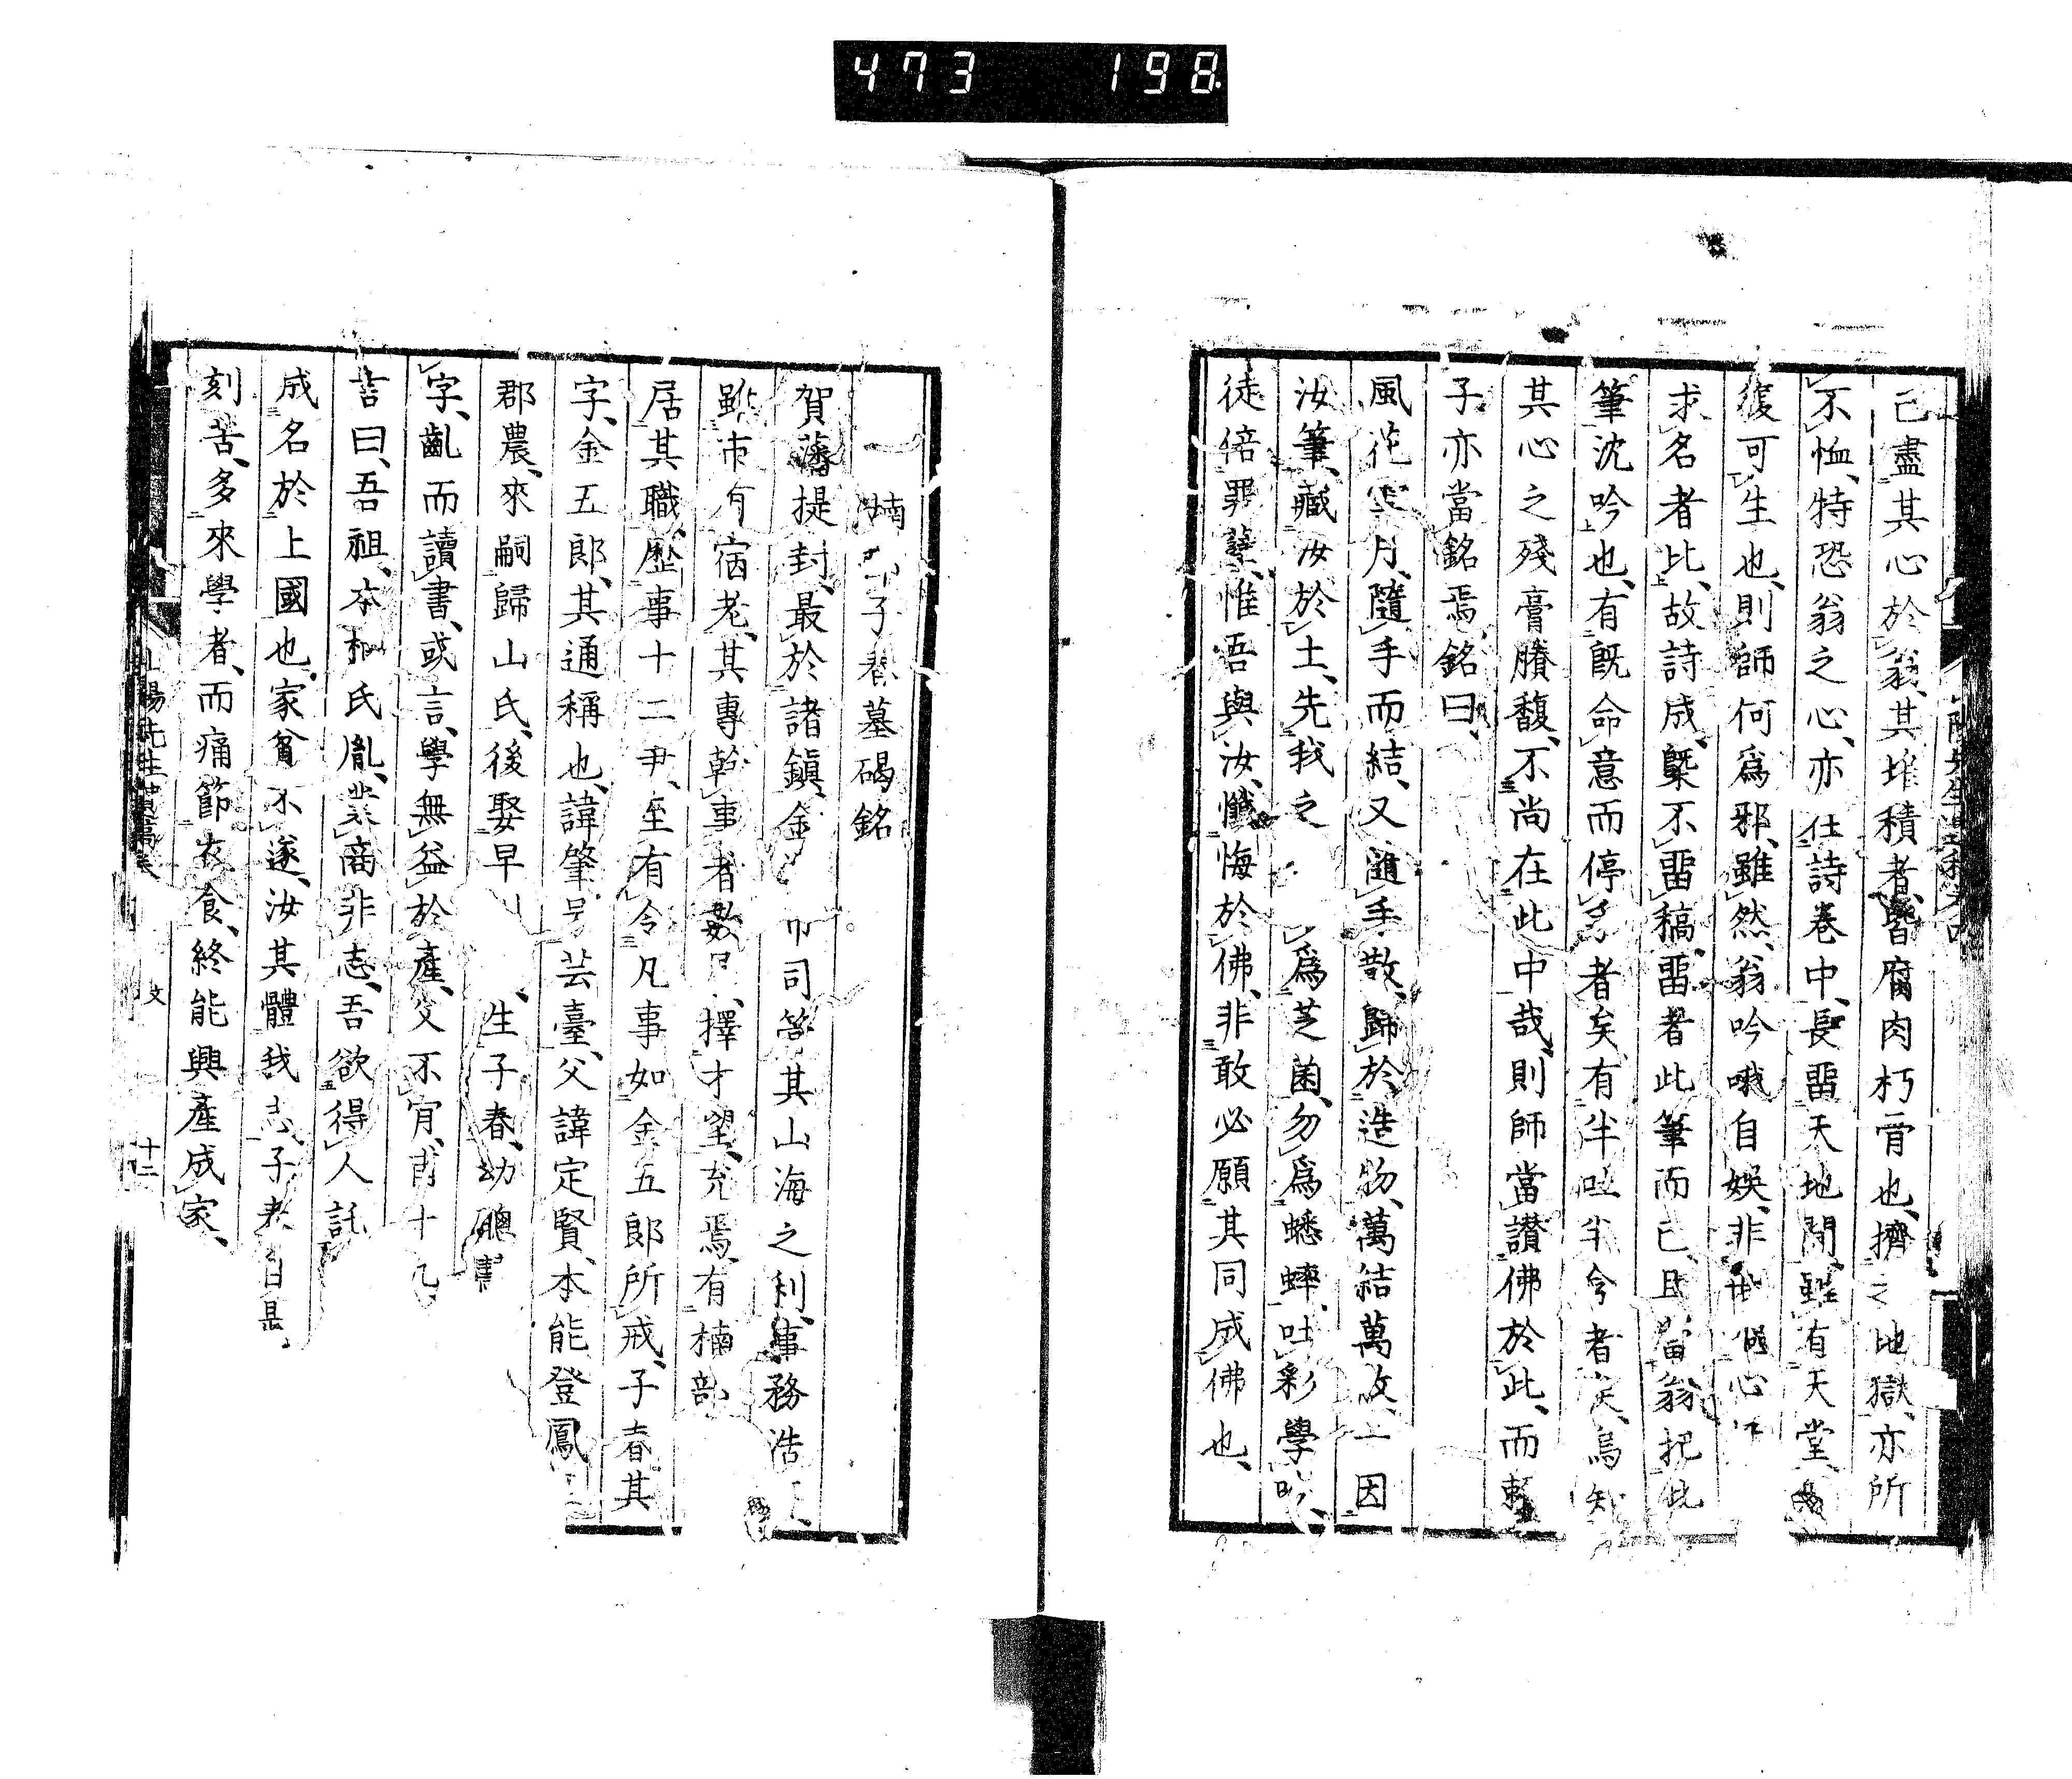 473 198
己盡其心於翁、其堆積者、皆腐肉朽骨也、擠之地獄、亦所
不恤、特恐翁之心、亦在詩卷中、長畱天地間、雖有天堂
復可生也、則師何爲邪、雖然、翁吟哦自娯、非 心
求名者比、故詩成、槩不畱稿、畱者此筆而已、且當翁把此
筆沈吟也、有旣命意而停 者矣、有半吐半含者矣、烏知
其心之殘膏賸馥、不尚在此中哉、則師當讃佛於此、而
子亦當銘焉、銘曰、
風花 月、隨手而結、又隨手散、歸於造物、萬結萬散、一因
汝筆、藏汝於土、先我之 爲芝菌、勿爲蟋蟀、吐彩學
徒倍罪孽、惟吾與汝、懺悔於佛、非敢必願其同成佛也、
子春墓碣銘
賀藩提封、最於諸鎭、金 司管其山海之利、事務浩
雖市有宿老、其專幹事者數 、擇才望、充焉、有楠部
居其職、歷事十二尹、至有令凡事如金五郎所戒、子春其
字、金五郎、其通稱也、諱肇号芸臺、父諱定賢、本能登鳳
郡農、來嗣歸山氏、後娶早 生子春、幼聰
字、齔而讀書、或言、學無益於產、父不肎、甫十
吉曰、吾祖、本楠氏胤、業商非志、吾欲得人託
成名於上國也、家貧不遂、汝其體我志、子春自是、
刻苦、多來學者、而痛節衣食、終能興產成家、
山陽先生遺稿 文 十二